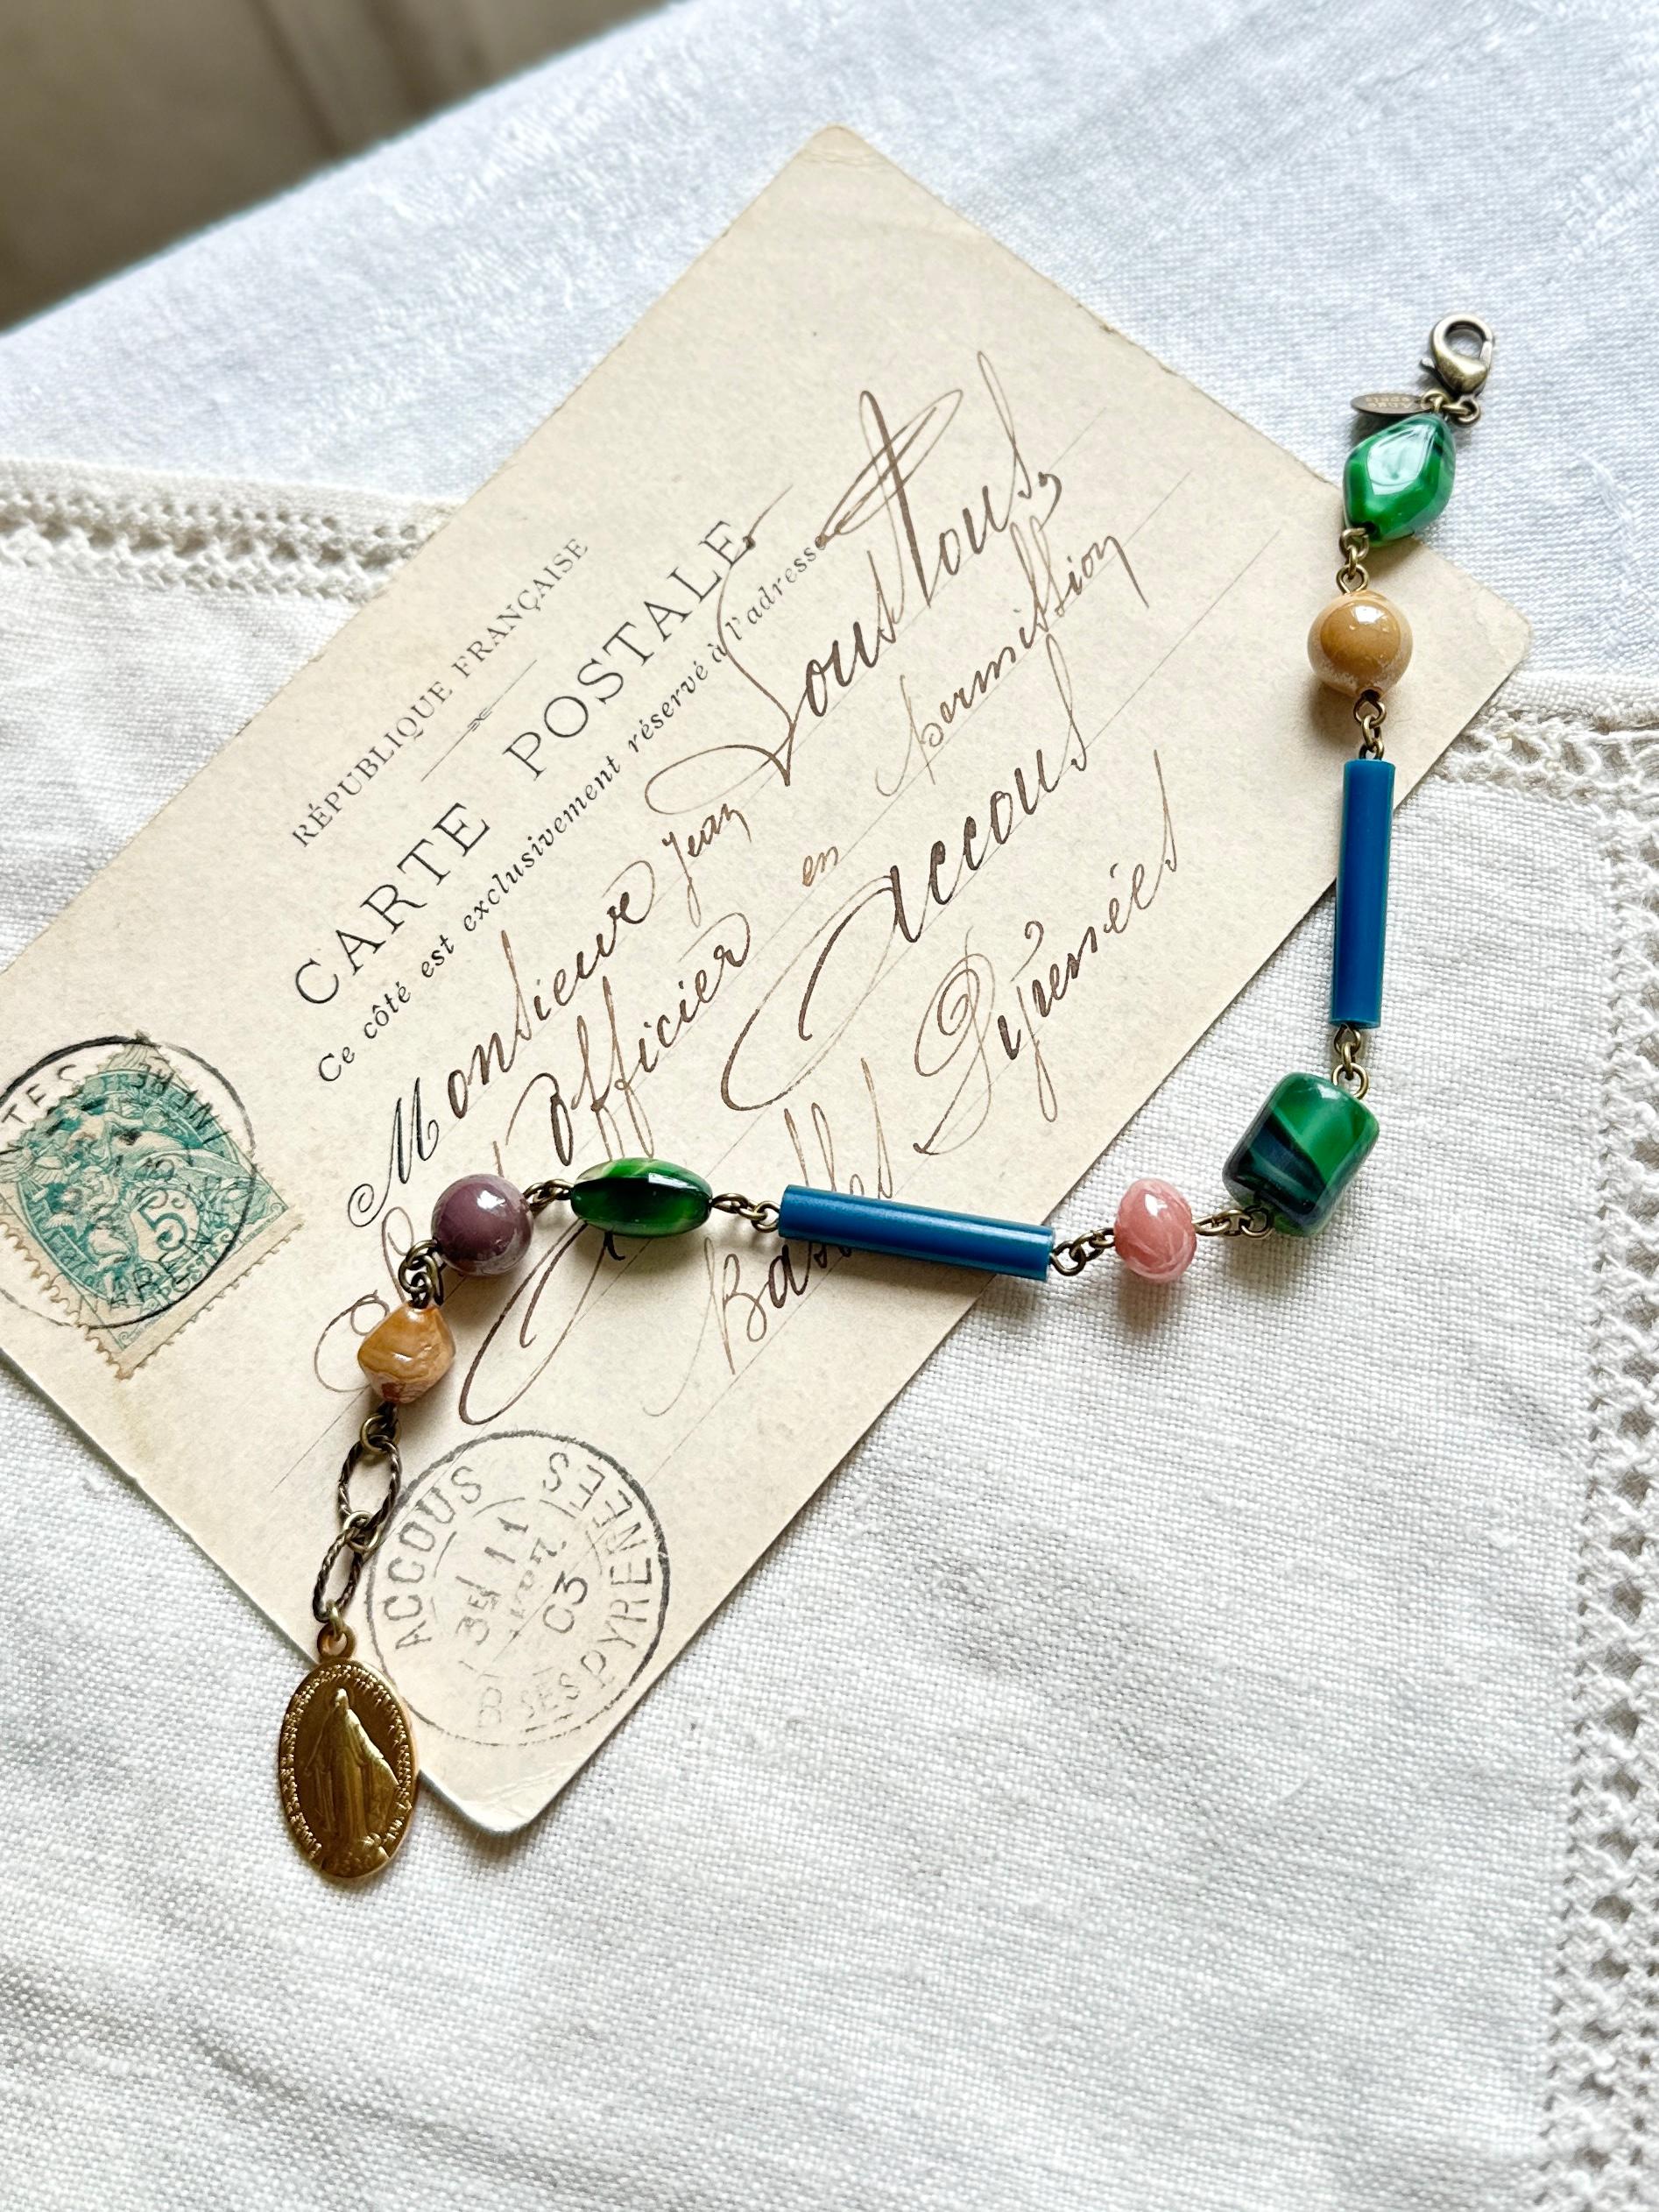 RÉPUBLIQUE FRANÇAISE
CARTE POSTALE
Ce côté est exclusivement réservé à l'adresse
Monsieur Jean Loustlous,
Officier en permission
Accous
Basses Pyrénées
5
ACCOUS
11
03
BSES PYRENEES